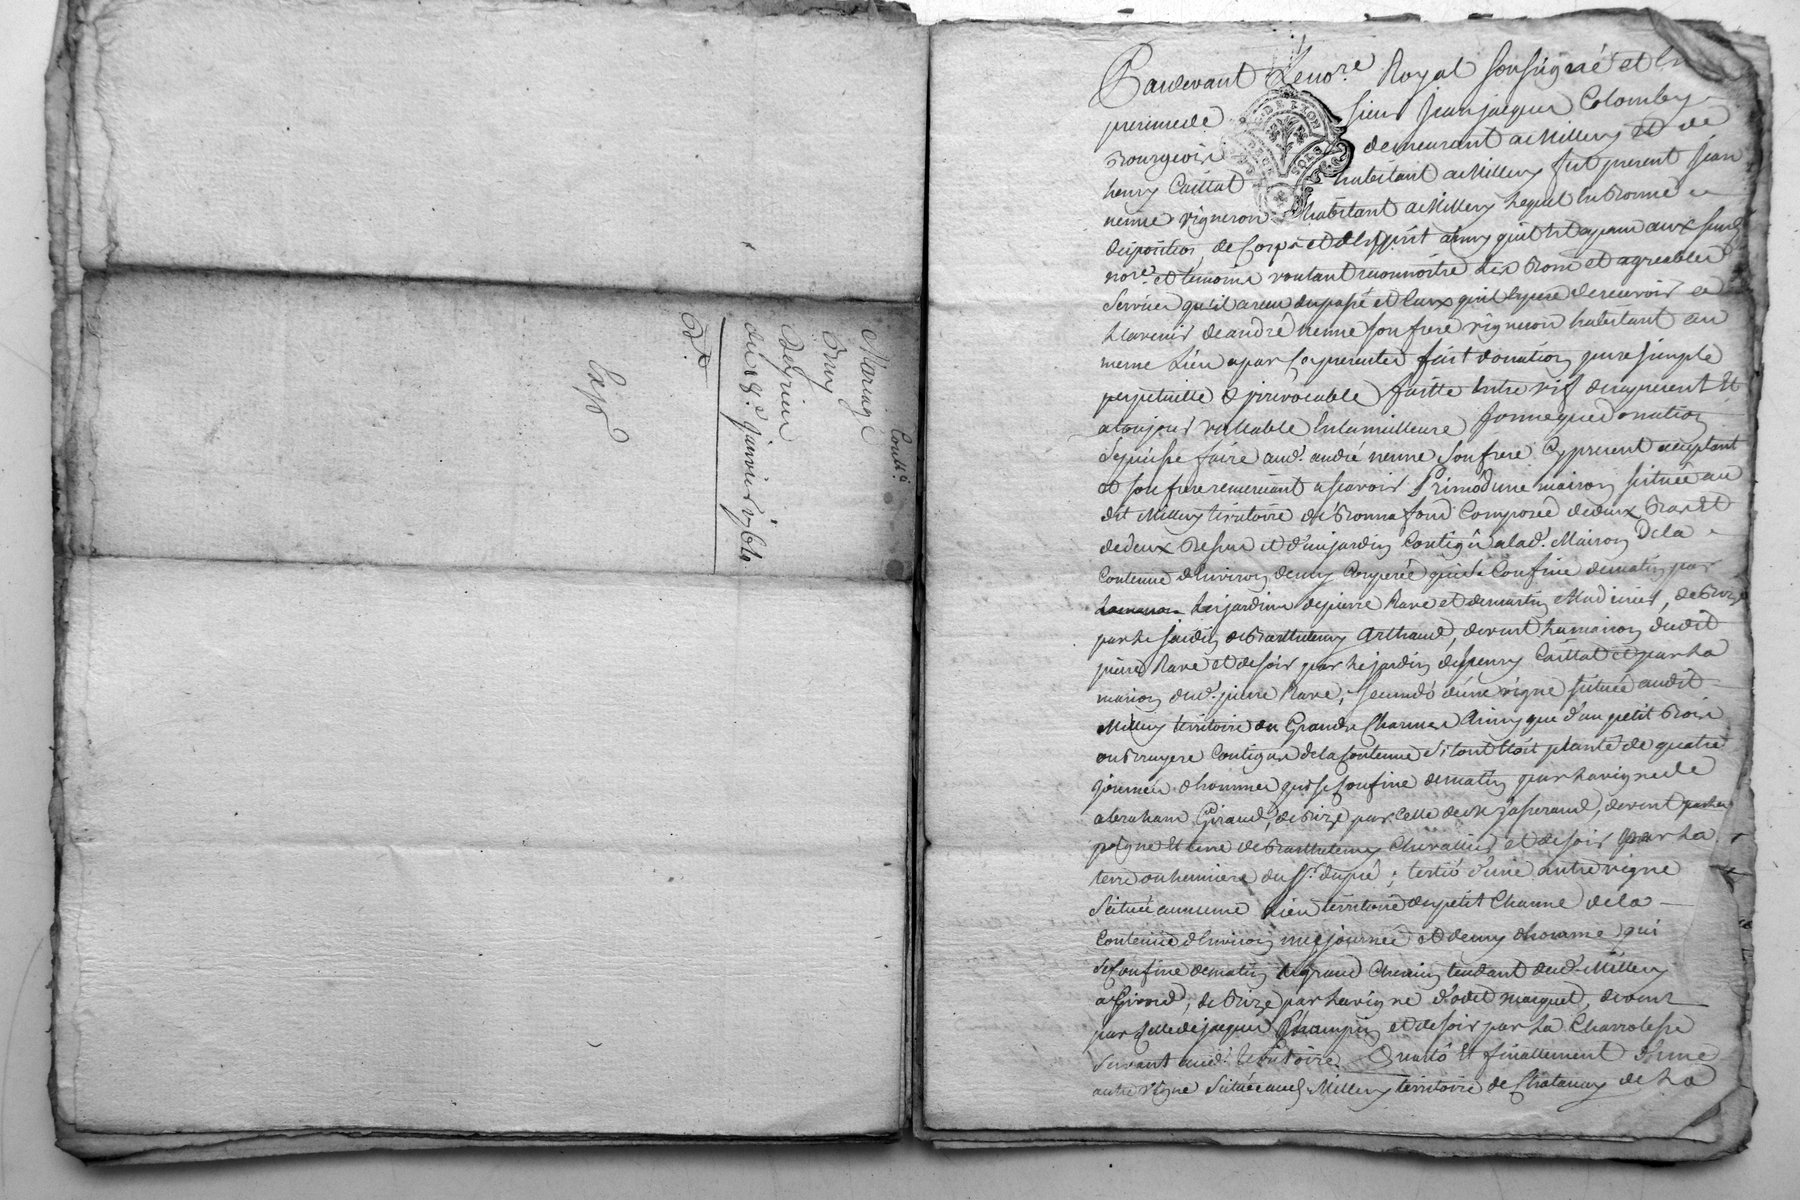 Contt.
Mariage
Bruy
Seguin
du 18e janvier 17614
Exp
Pardevant Le no.re Royal soussigné et en
presence de sieur Jean jacques Colomby
Bourgeois demeurant a Millery et de
henry Caillat habitant a Millery fut present jean
nenne vigneron habitant a Millery lequel en Bonne
disposition de Corps et d'esprit ainsy quil est aparu aux susd.
no.re et temoins voulant reconnoitre les Bons et agreables
Services qu'il a reçu du passé et Ceux quil Espere de recevoir a
L'avenir de andré nenne son frere vigneron habitant au
meme Lieu a par Ces presentes fait donation pure simple
perpetuelle & irrevocable faitte Entre vifs des apresent Et
a toujours vallable En la meilleure forme que donation
se puisse faire aud. andré nenne son frere Cy present acceptant
et son frere remerciant a scavoir Primo d'une maison située au
dit Millery territoire de Bonnafond Composée de deux Bas Et
de deux Dessus et d'un jardin Contigü a lad. Maison De la
Contenue d'Environ demy Couperée qui se Confine de matin par
Les jardins de pierre Rave et de martin Mudinier, de Bize
par Le jardin de Barthelemy Arthaud, de vent La maison dudit
pierre Rave et de soir par Le jardin de henry Caillat et par La
maison dud. pierre Rave; secundo d'une vigne située audit
Millery territoire du Grande Charmes Ainsy que d'un petit Bois
ou Bruyere Contigue de la Contenue si tout Etoit planté de quatre
journées d'hommes qui se Confine de matin par La vigne de
abraham Giraud, de Bize par Celle de M. jasseraud, de vent par La
vigne Et terre de Barthelemy Chevallier et de soir par La
terre ou henniere du Sr. dupré; tertio d'une autre vigne
Scituée au meme Lieu territoire du petit Charme de la
Contenue d'Environ une journée et demy d'homme qui
se Confine de matin Le grand Chemin tendant dud. Millery
a Givors, de Bize par La vigne d'odet marquet, de vent
par Celle de jacques Champin et de soir par La Charrolesse
Servant aud. territoire. Quarto Et finallement d'une
autre vigne Scituée aud. Millery territoire de Chatanay de La